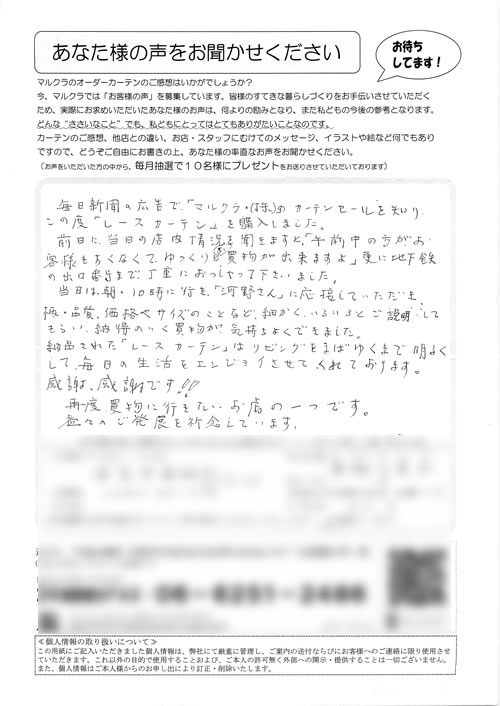 あなた様の声をお聞かせください
お待ち
してます!
マルクラのオーダーカーテンのご感想はいかがでしょうか?
今、マルクラでは「お客様の声」を募集しています。皆様のすてきな暮らしづくりをお手伝いさせていただく
ため、実際にお求めいただいたあなた様のお声は、何よりの励みとなり、また私どもの今後の参考となります。
どんな“ささいなこと”でも、私どもにとってはとてもありがたいことなのです。
カーテンのご感想、他店との違い、お店・スタッフにむけてのメッセージ、イラストや絵など何でもあり
ですので、どうぞご自由にお書きの上、あなた様の率直なお声をお聞かせください。
(お声をいただいた方の中から、毎月抽選で10名様にプレゼントをお送りさせていただいております)
毎日新聞の広告で、「マルクラ・(株)」のカーテンセールを知り、
この度「レースカーテン」を購入しました。
前日に、当日の店内情況を聞をますと、「午前中の方がお
客様も少くなくて、ゆっくりと買物が出来ますよ」更に地下鉄
の出口番号まで丁重におっしゃって下さいました。
当日は、朝・10時に行き、「河野さん」に応接していただき、
柄・品質、価格やサイズのことなど、細かく、いろいろとご説明して
もらい、納得のいく買物が気持ちよくできました。
納品された「レースカーテン」はリビングをまばゆくまで明るく
して、毎日の生活をエンジョイさせてくれております。
感謝、感謝です!!
再度、買物に行きたいお店の一つです。
益々のご発展を祈念しています。
06-6251-2486
≪個人情報の取り扱いについて≫
この用紙にご記入いただきました個人情報は、弊社にて厳重に管理し、ご案内の送付ならびにお客様へのご連絡に限り使用させ
ていただきます。これ以外の目的で使用することおよび、ご本人の許可無く外部への開示・提供することは一切ございません。
また、個人情報はご本人様からのお申し出により訂正・削除いたします。